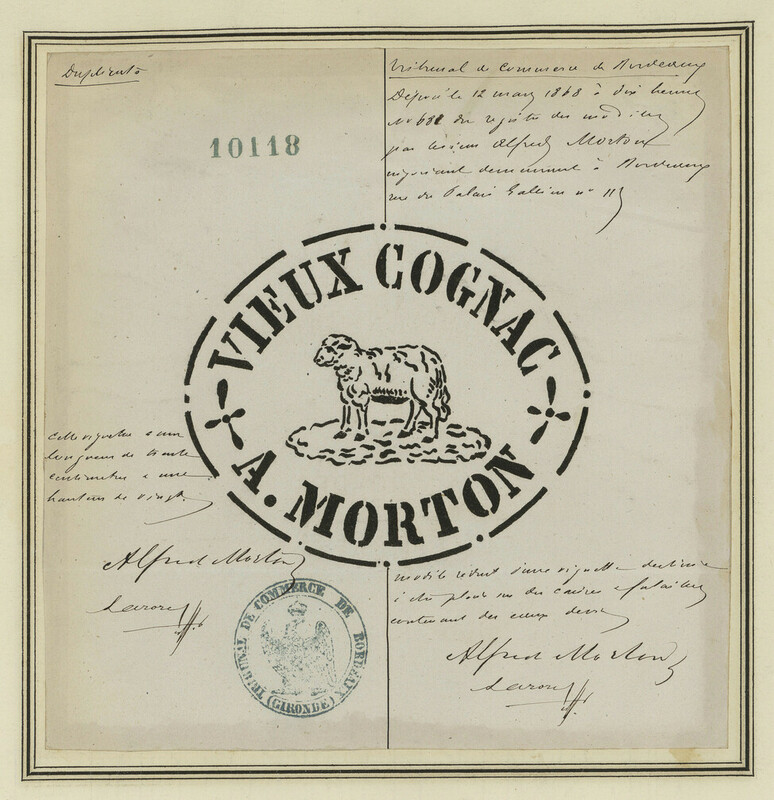 Duplicata
10118
Tribunal de Commerce de Bordeaux
Déposé le 12 mars 1868 à dix heures
No 681 du registre des modèles
par le sieur Alfred Morton
négociant demeurant à Bordeaux
rue du Palais Gallien no 11
VIEUX COGNAC
A. MORTON
Cette vignette a une
longueur de trente
centimètres & une
hauteur de vingt
Alfred Morton
modèle réduit d'une vignette destinée
à être placée sur des caisses & futailles
contenant des eaux de vie
Alfred Morton
TRIBUNAL DE COMMERCE DE BORDEAUX
(GIRONDE)